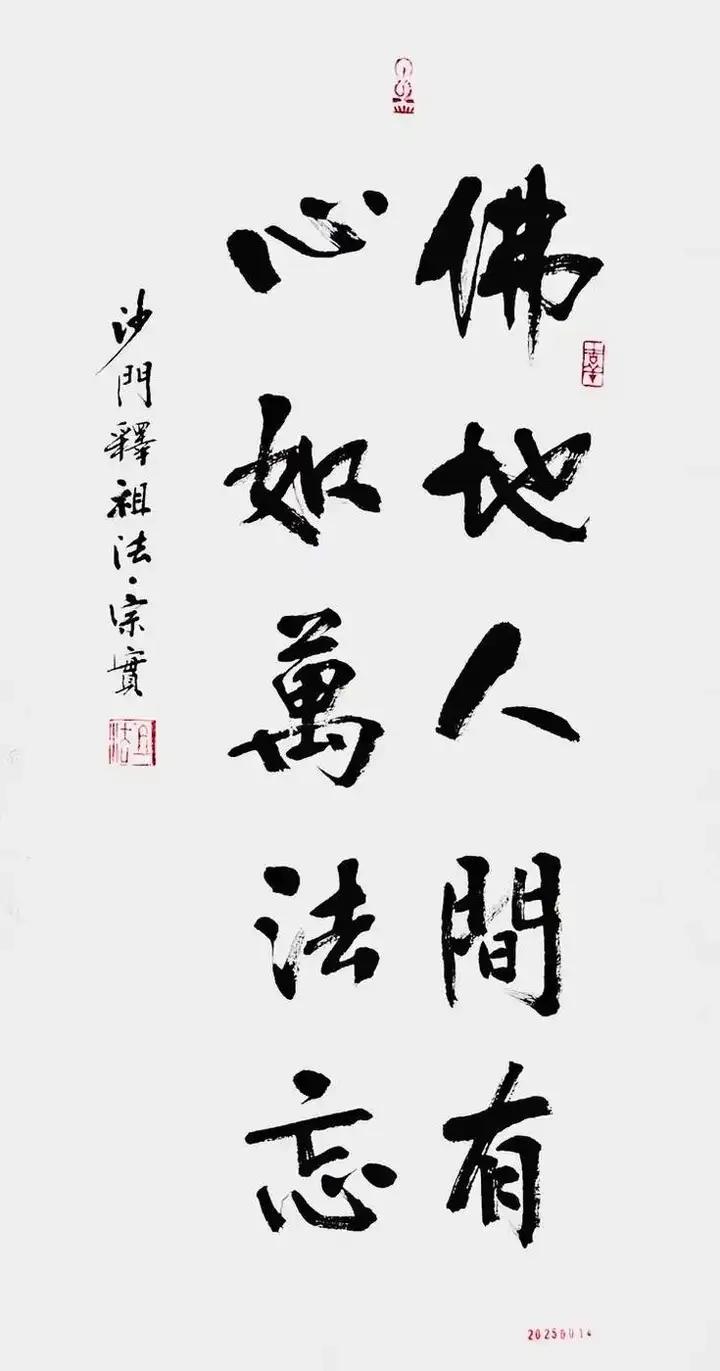 佛地人間有
心如萬法忘
沙門釋祖法·宗實